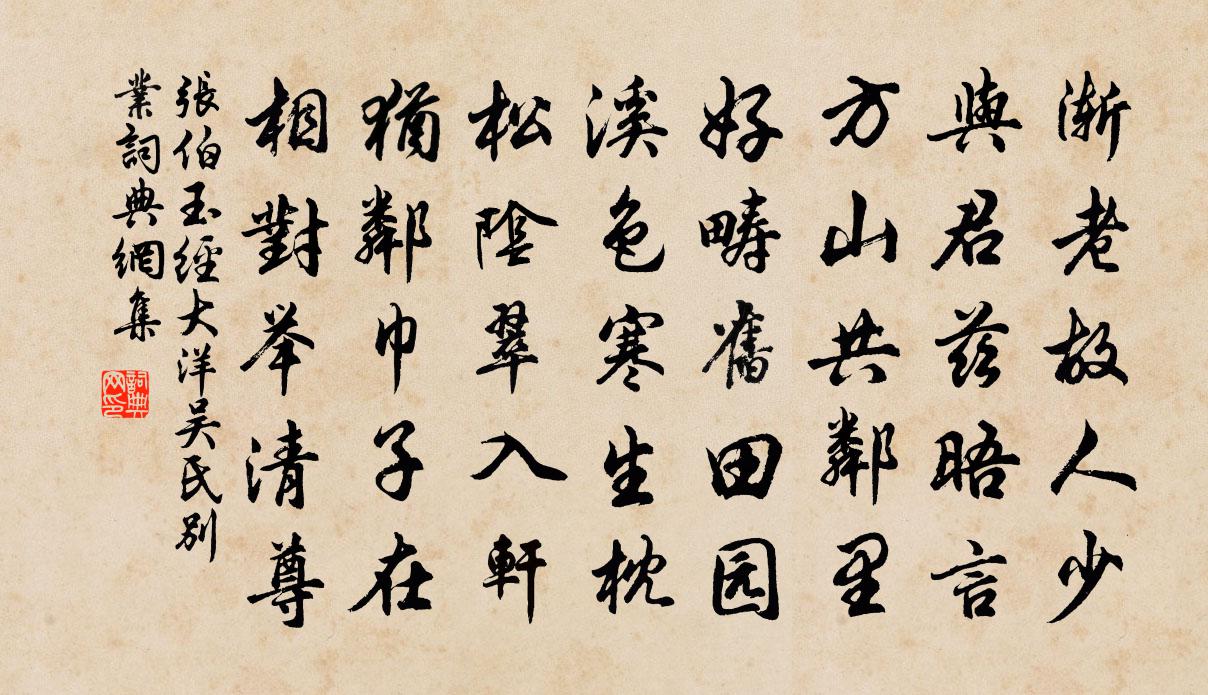 漸老故人少
與君茲晤言
方山共鄰里
好疇舊田园
溪色寒生枕
松陰翠入軒
猶鄰巾子在
相對举清尊
張伯玉經大洋吴氏别
業詞典網集
詞典
网印